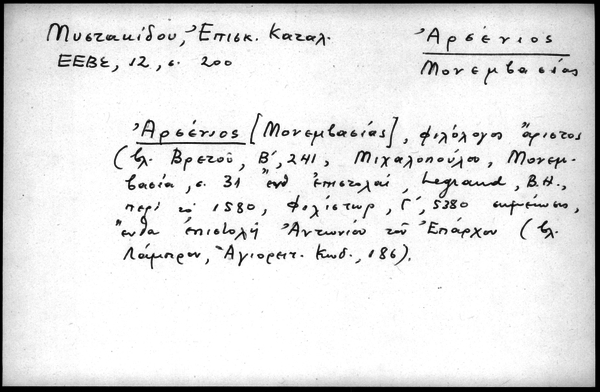 Μυστακίδου, Ἐπισκ. Καταλ.
ΕΕΒΣ, 12, σ. 200
Ἀρσένιος
Μονεμβασίας
Ἀρσένιος [Μονεμβασίας], φιλόλογος ἄριστος
(βλ. Βρετοῦ, Β΄, 241, Μιχαλοπούλου, Μονεμ-
βασία, σ. 31 ἔνθ ἐπιστολαί, Legrand, B.H.,
περὶ τὸ 1580, Φιλίστωρ, Γ΄, 5380 σημείωσις,
ἔνθα ἐπιστολὴ Ἀντωνίου τοῦ Ἐπάρχου (βλ.
Λάμπρου, Ἁγιορειτ. Κωδ., 186).